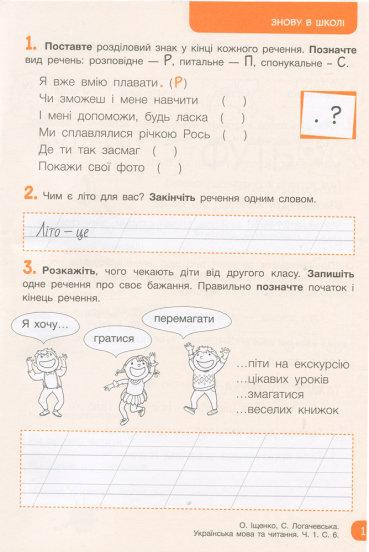 ЗНОВУ В ШКОЛІ
1. Поставте розділовий знак у кінці кожного речення. Позначте
вид речень: розповідне — Р, питальне — П, спонукальне – С.
Я вже вмію плавати. (Р)
Чи зможеш і мене навчити ( )
І мені допоможи, будь ласка ( )
Ми сплавлялися річкою Рось ( )
Де ти так засмаг ( )
Покажи свої фото ( )
. ?
2. Чим є літо для вас? Закінчіть речення одним словом.
Літо – це
3. Розкажіть, чого чекають діти від другого класу. Запишіть
одне речення про своє бажання. Правильно позначте початок і
кінець речення.
Я хочу...
гратися
перемагати
...піти на екскурсію
...цікавих уроків
...змагатися
...веселих книжок
О. Іщенко, С. Логачевська.
Українська мова та читання. Ч. 1. С. 6.
1